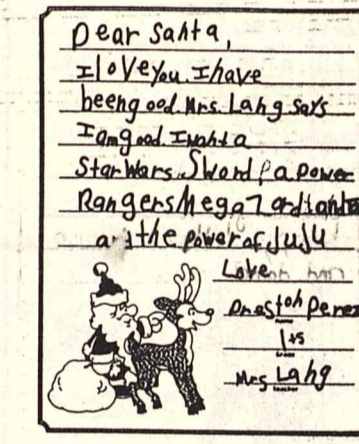 Dear Santa,
I love you. I have
been good. Mrs. Lang says
I am good. I want a
Star Wars Sword, a Power
Rangers MegaZord and
and the power of JuJu
Love
Preston Perez
name
1ts
grade
Mrs Lang
teacher